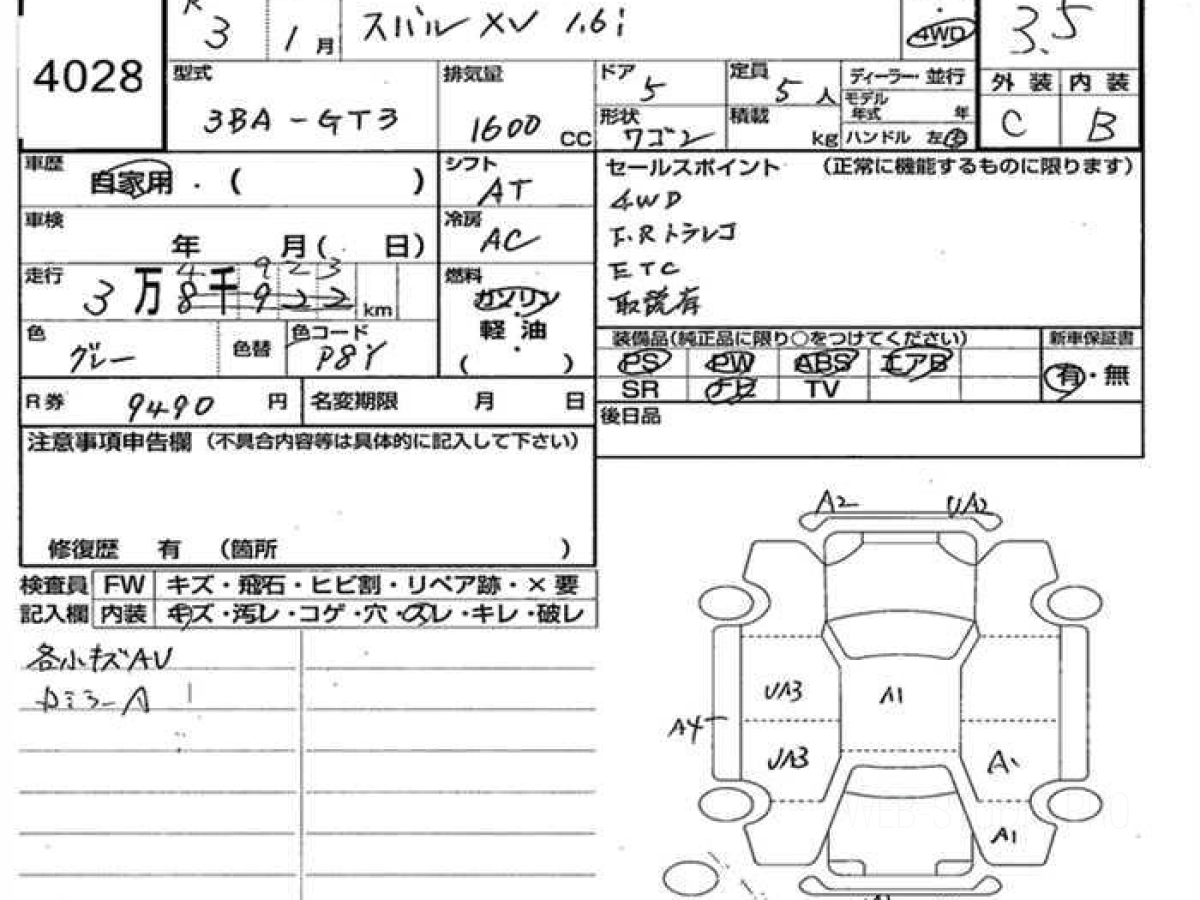 4028
R
3
1月
スバル XV 1.6i
4WD
3.5
外装 内装
C B
型式
3BA-GT3
排気量
1600 CC
ドア
5
定員
5人
形状
ワゴン
積載
kg
ディーラー・並行
モデル
年式 年
ハンドル 左右
車歴
自家用・( )
シフト
AT
セールスポイント (正常に機能するものに限ります)
4WD
ETC
取説有
車検
年 月( 日)
冷房
AC
走行
4 9 2 3
3万8千922 km
燃料
ガソリン
・
軽油
・
( )
色
グレー
色替
色コード
P8Y
装備品(純正品に限り○をつけてください)
新車保証書
PS PW ABS エアB
SR ナビ TV
有・無
R券
9490 円
名変期限 月 日
後日品
注意事項申告欄 (不具合内容等は具体的に記入して下さい)
修復歴 有 (箇所 )
検査員 FW キズ・飛石・ヒビ割・リペア跡・×要
記入欄 内装 キズ・汚レ・コゲ・穴・スレ・キレ・破レ
各小キズAU
A2 UA2
UA3
A1
A4
UA3
A1
A1